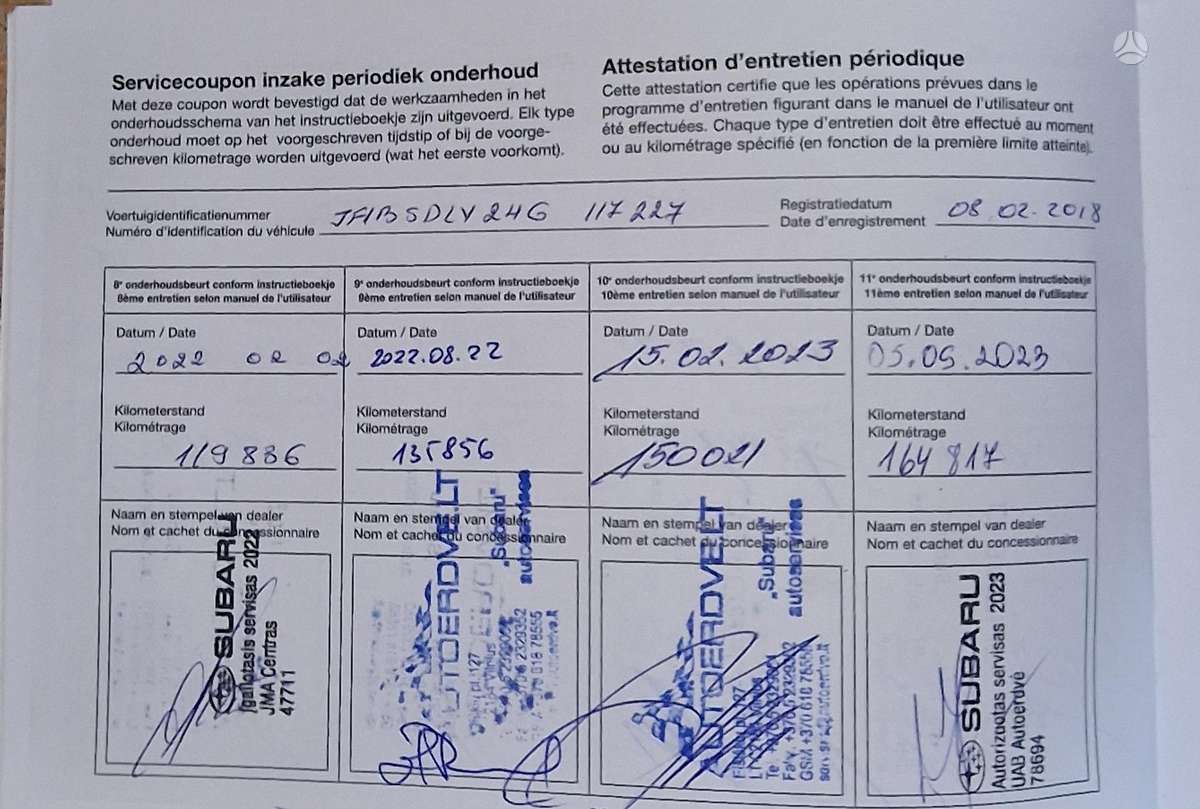 Servicecoupon inzake periodiek onderhoud
Met deze coupon wordt bevestigd dat de werkzaamheden in het
onderhoudsschema van het instructieboekje zijn uitgevoerd. Elk type
onderhoud moet op het voorgeschreven tijdstip of bij de voorge-
schreven kilometrage worden uitgevoerd (wat het eerste voorkomt).
Attestation d'entretien périodique
Cette attestation certifie que les opérations prévues dans le
programme d'entretien figurant dans le manuel de l'utilisateur ont
été effectuées. Chaque type d'entretien doit être effectué au moment
ou au kilométrage spécifié (en fonction de la première limite atteinte).
Voertuigidentificatienummer
Numéro d'identification du véhicule
JF1BSDLV24G 117227
Registratiedatum
Date d'enregistrement
08.02.2018
8e onderhoudsbeurt conform instructieboekje
8ème entretien selon manuel de l'utilisateur
Datum / Date
2022 02 02
Kilometerstand
Kilométrage
119836
Naam en stempel van dealer
Nom et cachet du concessionnaire
SUBARU
Įgaliotasis servisas 2022
JMA Centras
47711
9e onderhoudsbeurt conform instructieboekje
9ème entretien selon manuel de l'utilisateur
Datum / Date
2022.08.22
Kilometerstand
Kilométrage
135856
Naam en stempel van dealer
Nom et cachet du concessionnaire
AUTOERDVE.LT
„Subaru"
autoservisas
10e onderhoudsbeurt conform instructieboekje
10ème entretien selon manuel de l'utilisateur
Datum / Date
15.02.2023
Kilometerstand
Kilométrage
150021
Naam en stempel van dealer
Nom et cachet du concessionnaire
AUTOERDVE.LT
„Subaru"
autoservisas
11e onderhoudsbeurt conform instructieboekje
11ème entretien selon manuel de l'utilisateur
Datum / Date
05.09.2023
Kilometerstand
Kilométrage
164817
Naam en stempel van dealer
Nom et cachet du concessionnaire
SUBARU
Autorizuotas servisas 2023
UAB Autoerdvė
78694